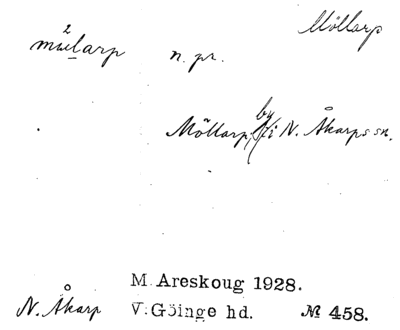 Möllarp
mɯ̊²l̲arp n. pr.
Möllarp, by i N. Åkarps sn.
M. Areskoug 1928.
N. Åkarp V. Göinge hd. № 458.